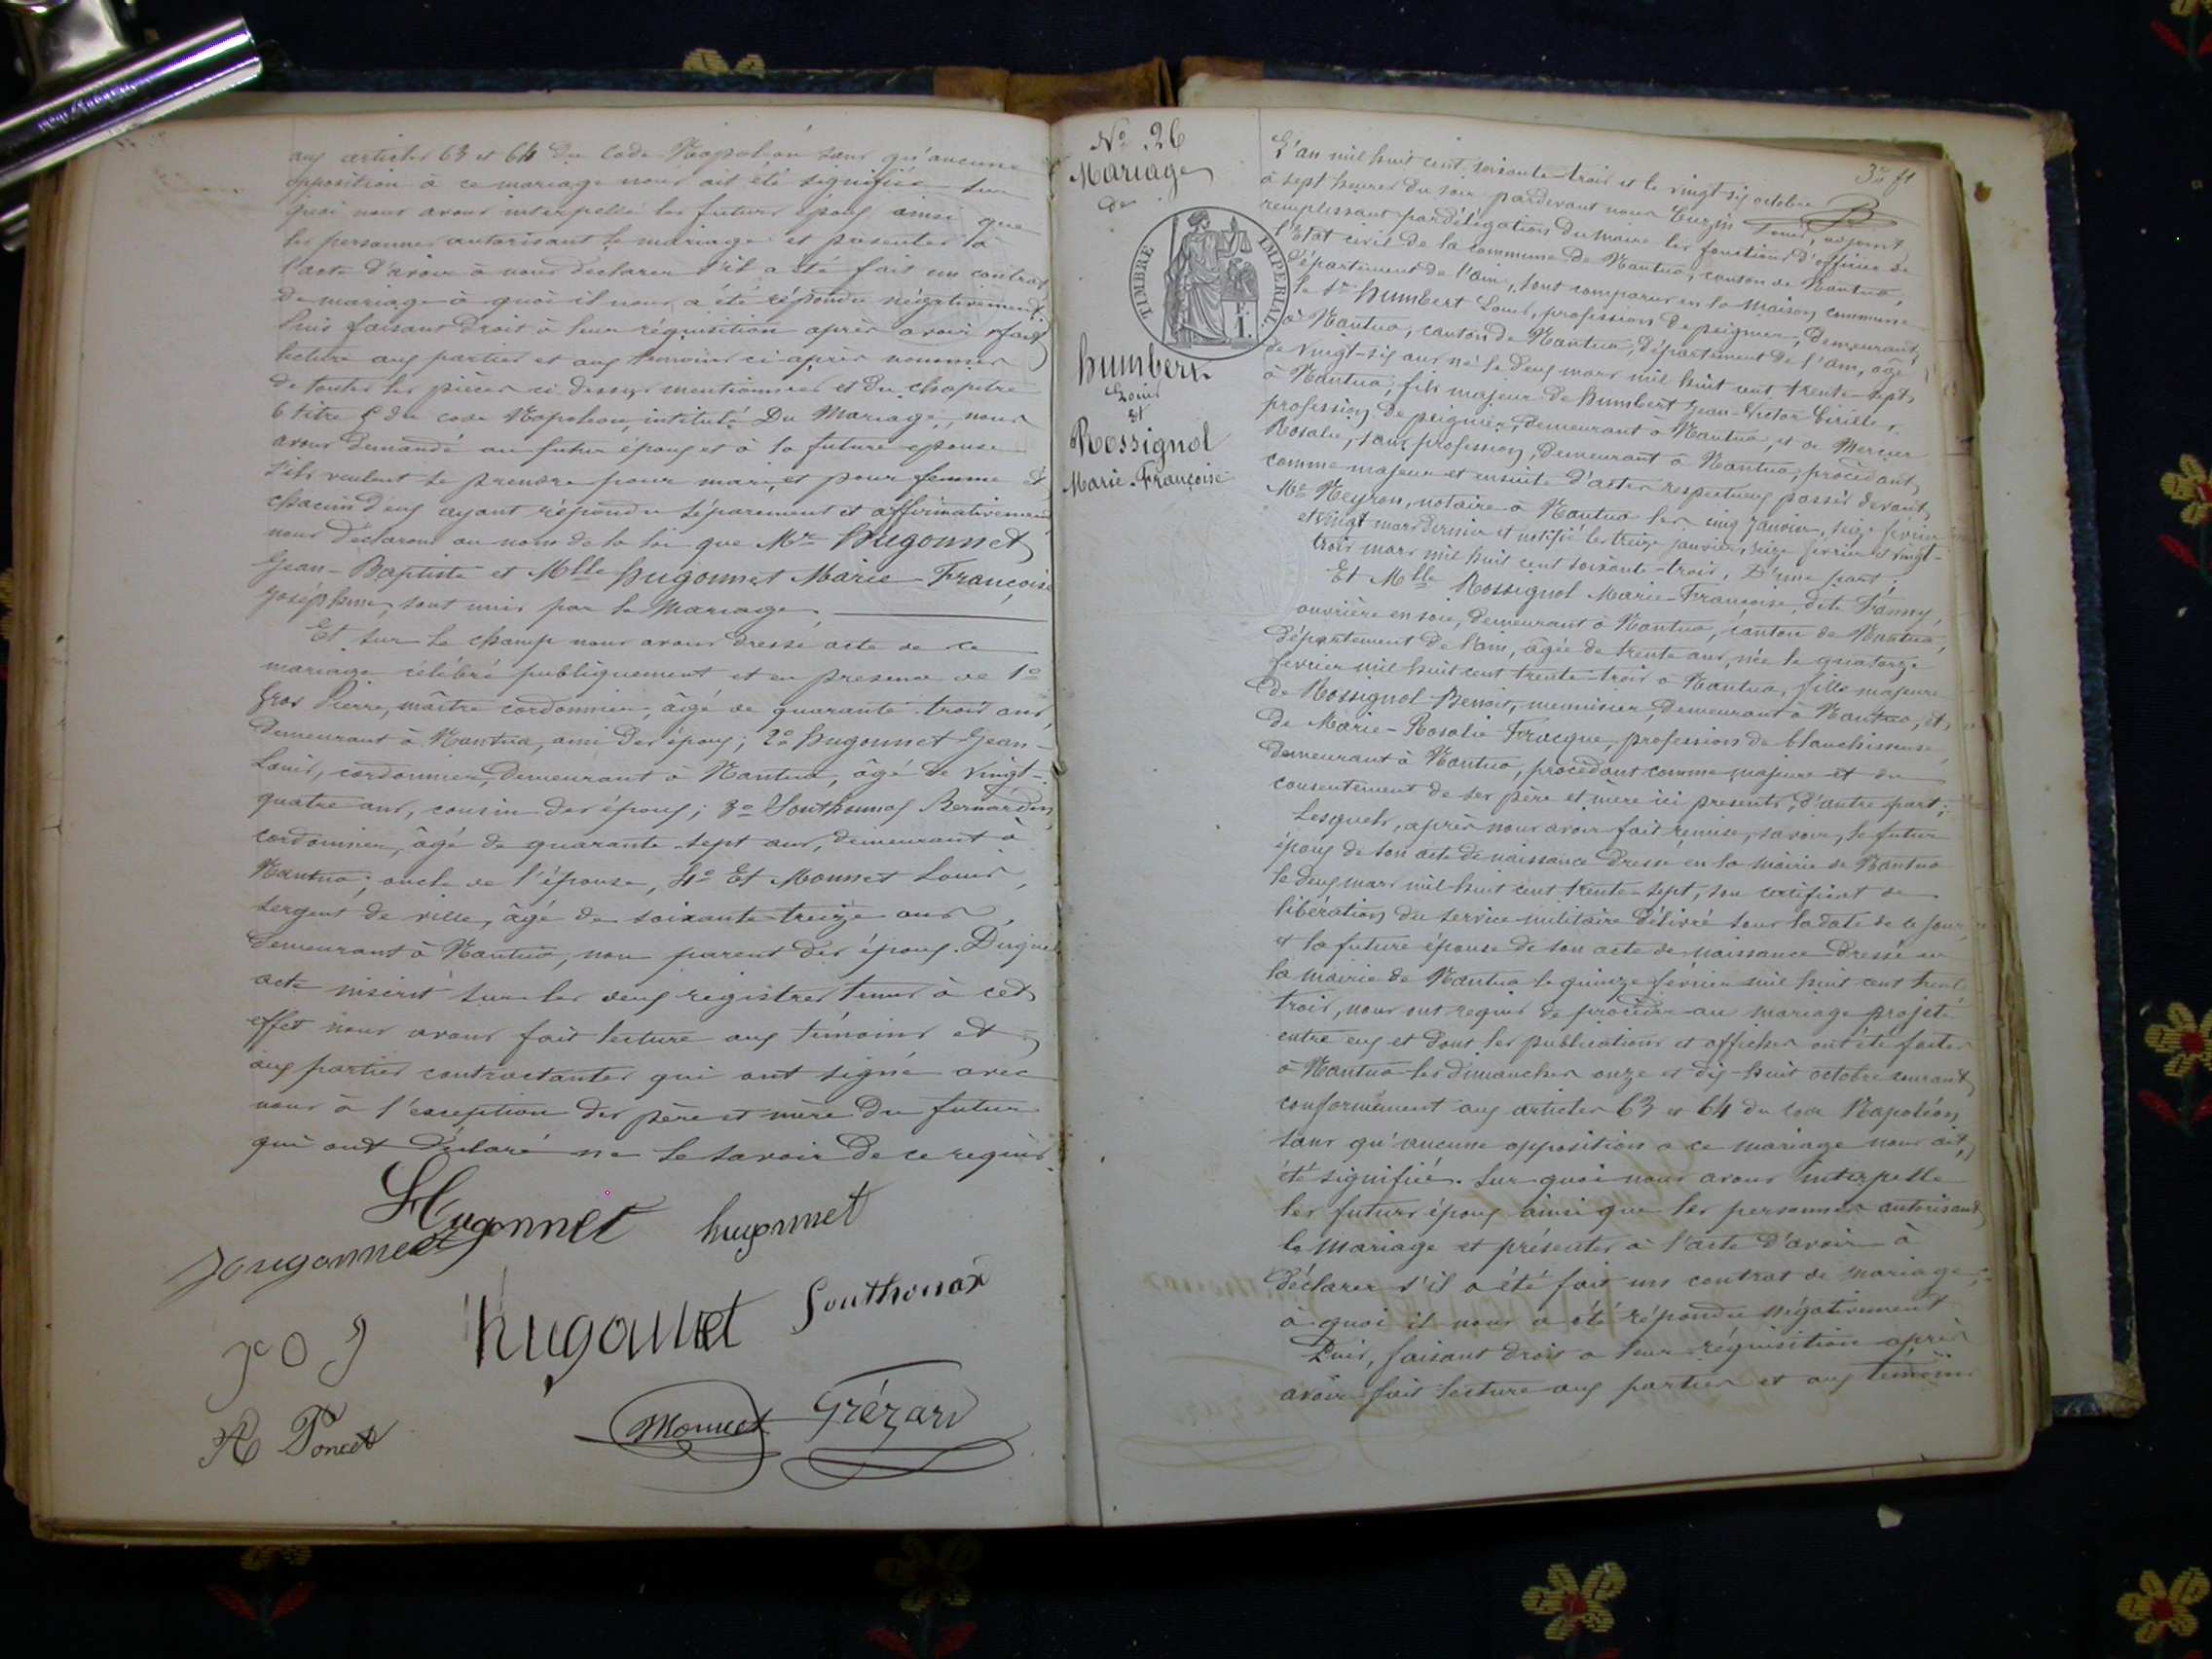 aux articles 63 et 64 du Code Napoléon sans qu'aucune
opposition à ce mariage nous ait été signifiée sur
quoi nous avons interpellé les futurs époux ainsi que
les personnes autorisant le mariage et présentes à
l'acte d'avoir à nous déclarer s'il a été fait un contrat
de mariage à quoi il nous a été répondu négativement.
Puis faisant droit à leur réquisition après avoir fait
lecture aux parties et aux témoins ci après nommés
de toutes les pièces ci dessus mentionnées et du chapitre
6 titre 5 du code Napoléon intitulé Du Mariage, nous
avons demandé au futur époux et à la future épouse
s'ils veulent se prendre pour mari et pour femme et
chacun d'eux ayant répondu séparément et affirmativement
nous déclarons au nom de la loi que Mr Hugonnet
Jean-Baptiste et Mlle Hugonnet Marie-Françoise
Joséphine, sont unis par le Mariage.
Et sur le champ nous avons dressé acte de ce
mariage célébré publiquement et en présence de 1o
Gros Pierre, maître cordonnier, âgé de quarante-trois ans,
demeurant à Nantua, ami des époux; 2o Hugonnet Jean-
Louis, cordonnier, demeurant à Nantua, âgé de vingt-
quatre ans, cousin des époux; 3o Southonax Bernardin,
cordonnier, âgé de quarante-sept ans, demeurant à
Nantua, oncle de l'épouse, 4o Et Monnet Louis,
sergent de ville, âgé de soixante-treize ans,
demeurant à Nantua, non parent des époux. Duquel
acte inscrit sur les deux registres tenus à cet
effet nous avons fait lecture aux témoins et
aux parties contractantes qui ont signé avec
nous à l'exception des père et mère du futur
qui ont déclaré ne le savoir de ce requis.
Hugonnet
hugonnet
hugonnet
Southonax
Monnet
Grézard
A Poncet
No 26
Mariage
de
TIMBRE IMPERIAL
1 F.
Humbert
Louis
et
Rossignol
Marie-Françoise
L'an mil huit cent soixante-trois et le vingt-six octobre
à sept heures du soir pardevant nous Louis, adjoint
remplissant par délégation du maire les fonctions d'officier de
l'Etat civil de la commune de Nantua, canton de Nantua,
département de l'ain, sont comparus en la maison commune
le Sr Humbert Louis, profession de peignier, demeurant
à Nantua, canton de Nantua, département de l'ain, âgé
de vingt-six ans né le deux mars mil huit cent trente-sept
à Nantua, fils majeur de Humbert Jean-Victor
profession de peignier, demeurant à Nantua, et de Mercier
Rosalie, sans profession, demeurant à Nantua, procédant
comme majeur et ensuite d'actes respectueux passés devant
Me Neyron, notaire à Nantua les cinq janvier, seize février
et vingt mars dernier et notifiés les treize janvier, seize février et vingt-
trois mars mil huit cent soixante-trois, D'une part;
Et Mlle Rossignol Marie-Françoise, dite Fanny,
ouvrière en soie, demeurant à Nantua, canton de Nantua,
département de l'ain, âgée de trente ans, née le quatorze
février mil huit cent trente-trois à Nantua, fille majeure
de Rossignol Benoit, menuisier, demeurant à Nantua, et
de Marie-Rosalie Fracque, profession de blanchisseuse,
demeurant à Nantua, procédant comme majeure et du
consentement de ses père et mère ici présents, d'autre part;
Lesquels, après nous avoir fait remise, savoir, le futur
époux de son acte de naissance dressé en la mairie de Nantua
le deux mars mil huit cent trente-sept, son certificat de
libération du service militaire délivré sous la date de ce jour,
et la future épouse de son acte de naissance dressé en
la mairie de Nantua le quinze février mil huit cent trente
trois, nous ont requis de procéder au mariage projeté
entre eux et dont les publications et affiches ont été faites
à Nantua les dimanches onze et dix-huit octobre courant
conformément aux articles 63 et 64 du Code Napoléon
sans qu'aucune opposition à ce mariage nous ait
été signifiée. Sur quoi nous avons interpellé
les futurs époux ainsi que les personnes autorisant
le mariage et présentes à l'acte d'avoir à
déclarer s'il a été fait un contrat de mariage;
à quoi il nous a été répondu négativement
Puis, faisant droit à leur réquisition après
avoir fait lecture aux parties et aux témoins